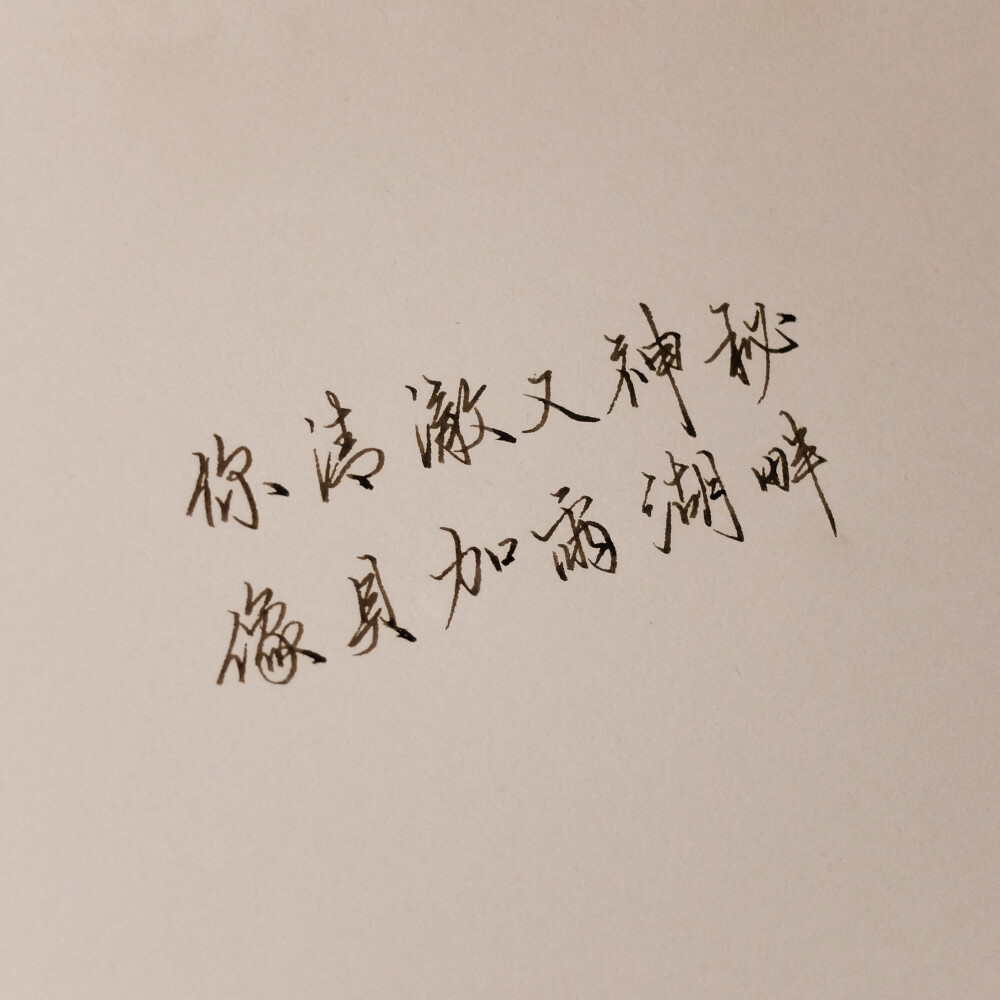 你清澈又神秘
像貝加爾湖畔